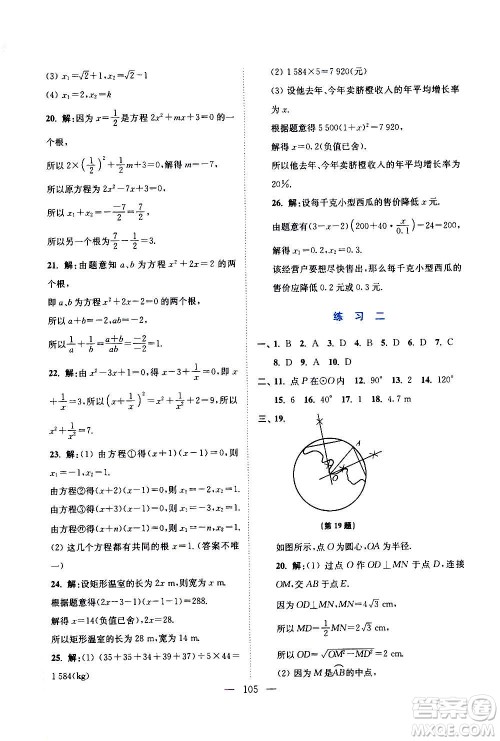 (3) x₁=√2+1, x₂=√2−1
(4) x₁=2, x₂=k
20. 解:因为 x=1/2 是方程 2x²+mx+3=0 的一
个根,
所以 2×(1/2)²+1/2m+3=0. 解得 m=−7,
所以原方程为 2x²−7x+3=0,
所以 x₁+x₂=−(−7)/2=7/2,
所以另一个根为 x=3.
21. 解:由题意知 a、b 为方程 x²+2x−3=0,
即 a、b 为方程 x²+2x−3=0 的根,
所以 a+b=−2, ab=−3,
所以 1/a+1/b=(a+b)/ab=(−2)/(−3)=2/3.
22. 解:
23. 解:(1) 由方程①得(x+1)(x−1)=0,则
x₁=−1, x₂=1.
由方程②得(x+2)(x−1)=0,则 x₁=−2, x₂=1.
由方程③得(x+3)(x−1)=0,则 x₁=−3, x₂=1.
(2) 这几个方程都有共同的根 x=1.(答案不唯
一)
24. 解:设矩形温室的长为 2x m,则宽为 x m.
根据题意,得(x−2)(2x−4)=288.
解得 x₁=−10(负值已舍), x₂=14.
所以矩形温室的长为 28 m,宽为 14 m.
25. 解:(1) (35+35+34+39+37)÷5×44=
1 584(kg)
(2) 1 584×5=7 920(元)
(3) 设他去年、今年卖脐橙收入的年平均增长率
为 x.
根据题意得 5 500(1+x)²=7 920.
解得 x=0.2(负值已舍).
所以他去年、今年卖脐橙的年平均增长率为
20%.
26. 解:设每千克小型西瓜的售价降低 x 元.
由题意有(3−x−2)(200+40·x/0.1)−24=200,
解得 x₁=0.2, x₂=0.3.
该经营户要想尽快售出,那么每千克小型西瓜的
售价降低 0.3 元.
练 习 二
一、1. B 2. A 3. D 4. B 5. C 6. D 7. C
8. D 9. A 10. D
二、11. 点 P 在⊙O内 12. 90° 13. 2
15. 6 16. 40° 17. 2 18. 4.7 m
三、19.
A
O
(第 19 题)
如图所示,点 O 为圆心,OA 为半径.
20. 解:(1) 过点 O 作 OD⊥MN 于点 D,连接
OM,交 AB 于点 E.
因为 OD⊥MN, MN=4√3,
所以 MD=1/2MN=2√3.
所以 OD=√(OM²−MD²)=2.
(2) 因为 M 是 AB⌢ 的中点,
— 105 —
答案圈
MXQE.COM